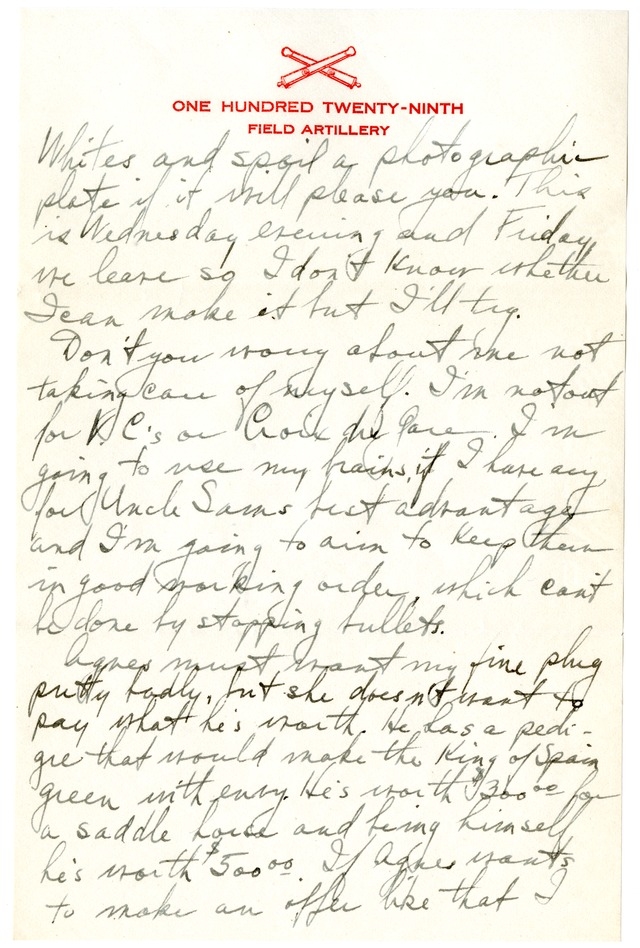 ONE HUNDRED TWENTY-NINTH
FIELD ARTILLERY
Whites and spoil a photographic
plate if it will please you. This
is Wednesday evening and Friday
we leave so I don't know whether
I can make it but I'll try.
Don't you worry about me not
taking care of myself. I'm not out
for V.C.'s or Croix de Gare. I'm
going to use my brains, if I have any
for Uncle Sams best advantage
and I'm going to aim to keep them
in good working order, which can't
be done by stopping bullets.
Agnes must want my fine plug
putty badly, but she doesn't want to
pay what he's worth. He has a pedi-
gre that would make the King of Spain
green with envy. He's worth $300 00 for
a saddle horse and being himself
he's worth $500 00. If Agnes wants
to make an offer like that I